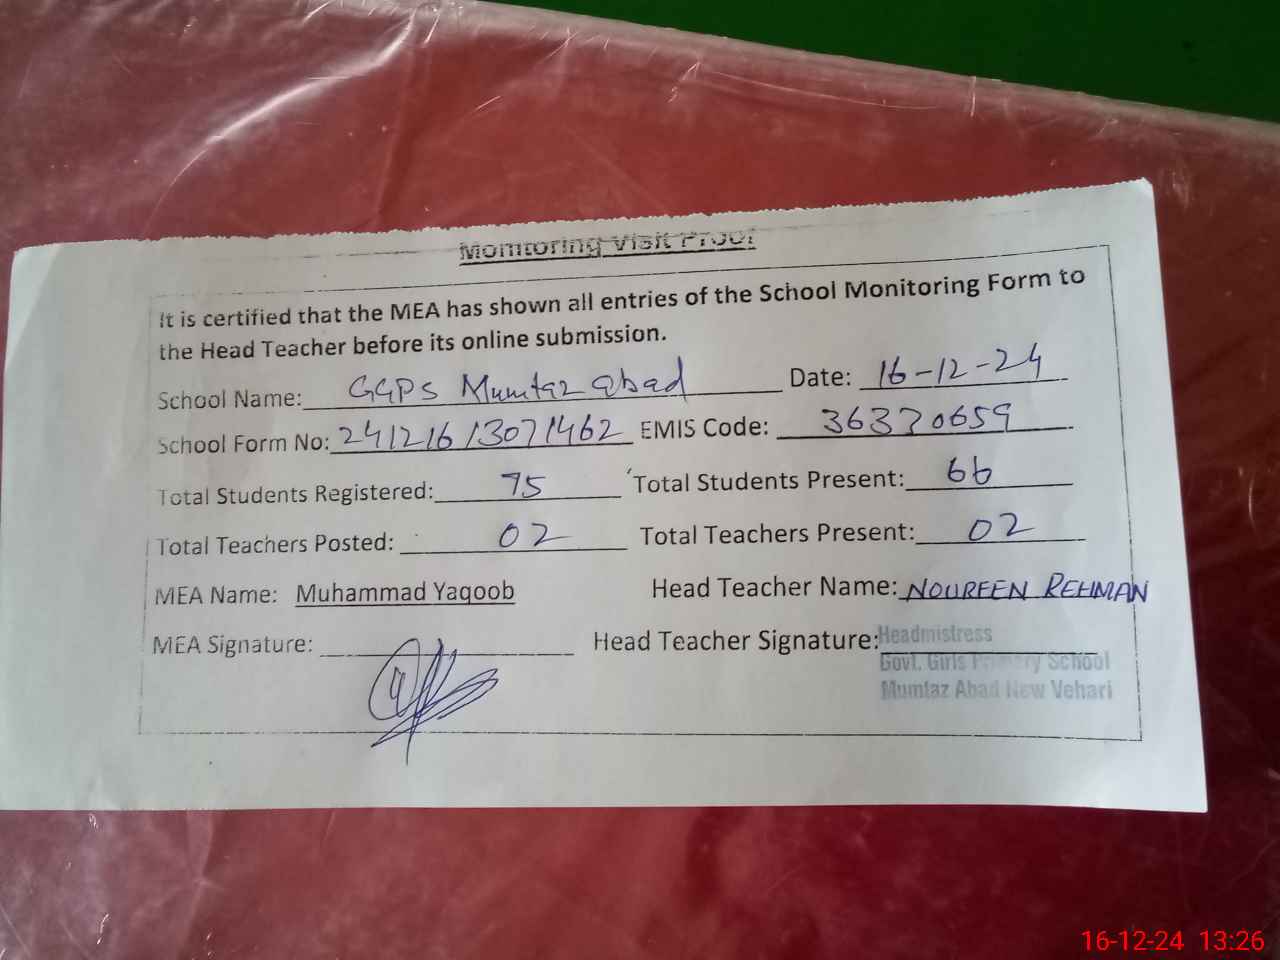 Monitoring Visit Proof
It is certified that the MEA has shown all entries of the School Monitoring Form to
the Head Teacher before its online submission.
School Name: GGPS Mumtaz abad Date: 16-12-24
School Form No: 24121613071462 EMIS Code: 36330659
Total Students Registered: 75 Total Students Present: 66
Total Teachers Posted: 02 Total Teachers Present: 02
MEA Name: Muhammad Yaqoob Head Teacher Name: NOUREEN REHMAN
MEA Signature: Head Teacher Signature: Headmistress
Govt. Girls Primary School
Mumtaz Abad New Vehari
16-12-24 13:26